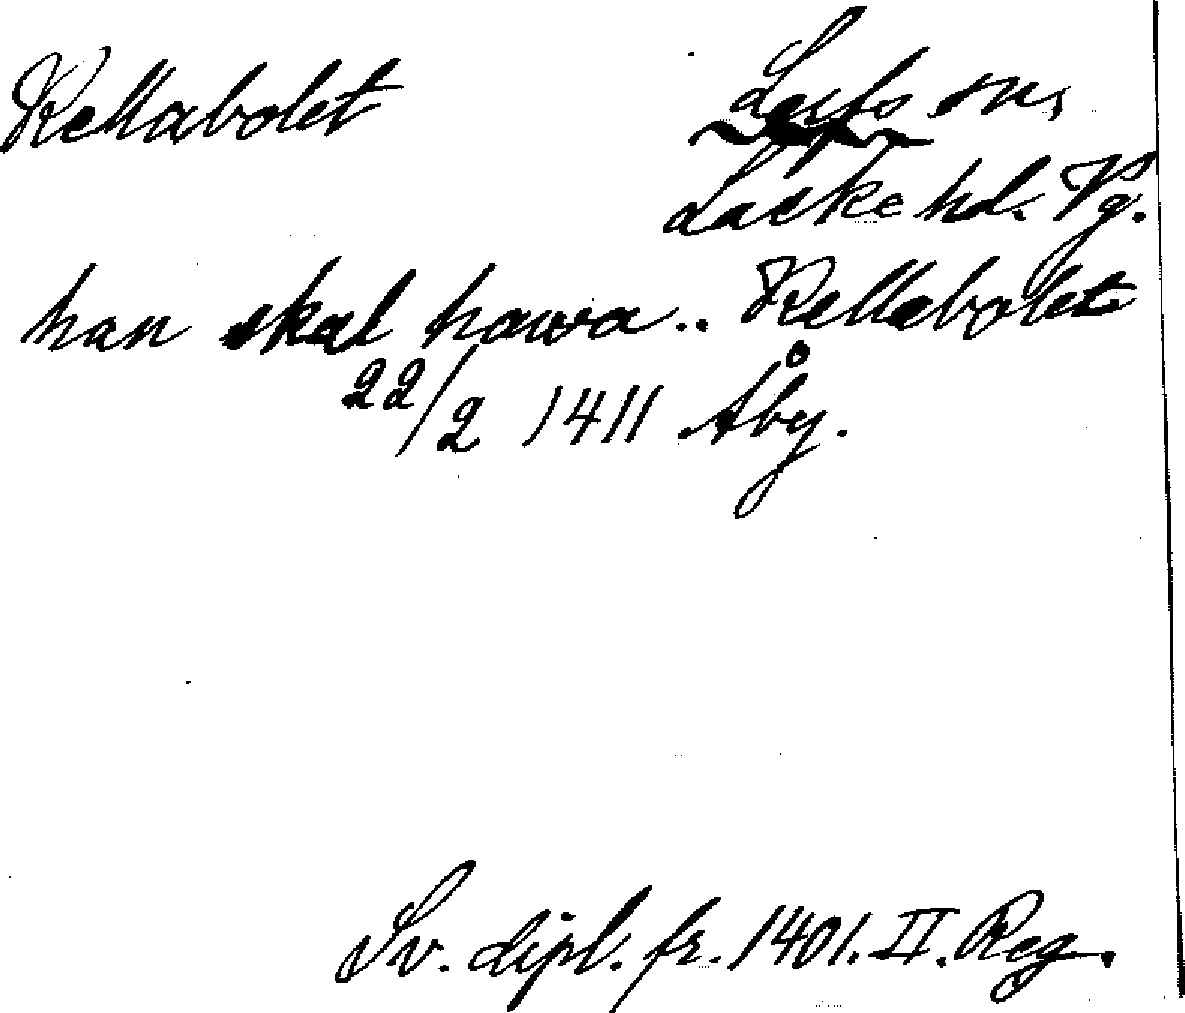 Kellabolet
Leksbergs sn,
Laske hd. Vg.
han skal hawa.. Kellabolet
22/2 1411 Åby.
Sv. dipl. fr. 1401. II. Reg.